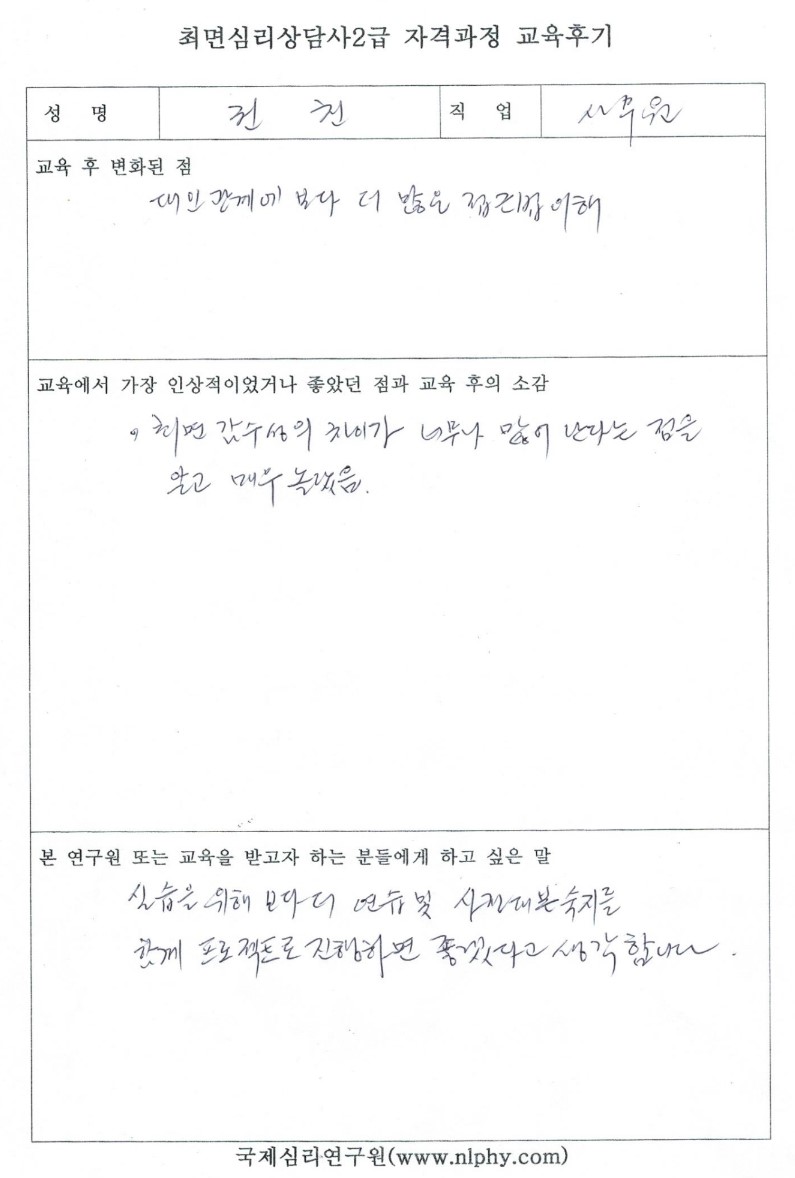 최면심리상담사2급 자격과정 교육후기
성 명 전 천 직 업 사무원
교육 후 변화된 점
대인관계에 보다 더 많은 접근법 이해
교육에서 가장 인상적이었거나 좋았던 점과 교육 후의 소감
최면 감수성의 차이가 너무나 많이 난다는 점을
알고 매우 놀랐음.
본 연구원 또는 교육을 받고자 하는 분들에게 하고 싶은 말
실습을 위해 보다 더 연습 및 사전대본숙지를
함께 프로젝트로 진행하면 좋겠다고 생각합니다.
국제심리연구원(www.nlphy.com)